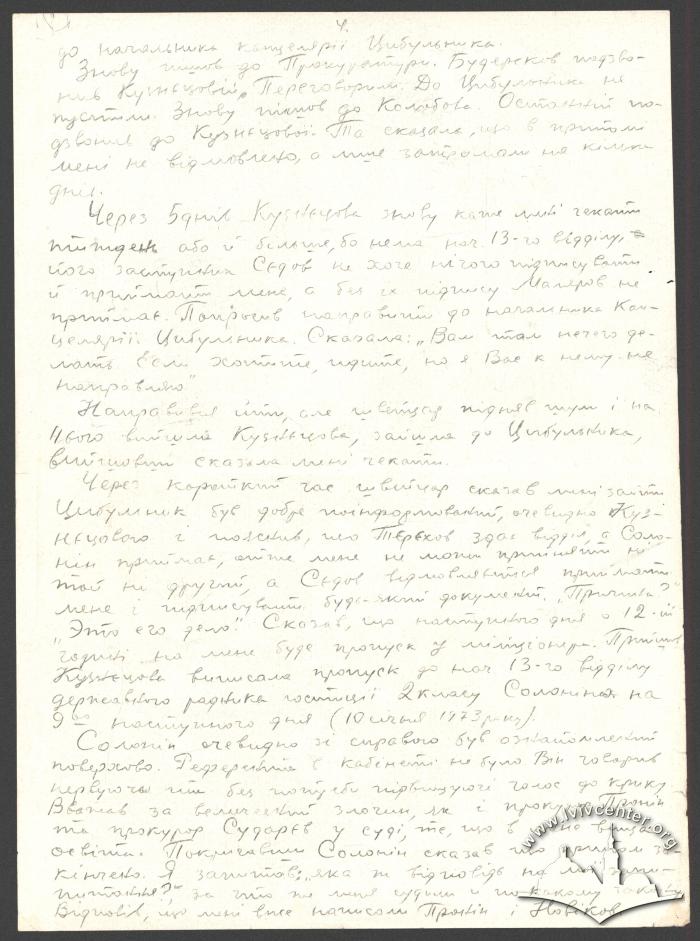 4.
до начальника канцелярії Цибульника.
Знову пішов до Прокуратури. Будереков подзво-
нив Кузнєцовій. Переговорили. До Цибульника не
пустили. Знову пішов до Колобова. Останній по-
дзвонив до Кузнєцової. Та сказала, що в прийомі
мені не відмовлено, а лише затримали на кілька
днів.
Через 5 днів Кузнєцова знову каже мені чекати
тиждень або й більше, бо нема нач. 13-го відділу,
його заступник Сєдов не хоче нічого підписувати
й приймати мене, а без їх підпису Маляров не
приймає. Попросив направити до начальника Кан-
целярії Цибульника. Сказала: „Вам там нечего де-
лать. Если хотите, идите, но я Вас к нему не
направляю"
Направився йти, але швейцар підняв шум і на
його вийшла Кузнєцова, зайшла до Цибульника,
вийшовши сказала мені чекати.
Через короткий час швейцар сказав мені зайти
Цибульник був добре поінформований, очевидно Куз-
нєцовою і пояснив, що Терехов здає відділ, а Соло-
нін приймає, отже мене не може прийняти ні
той ні другий, а Сєдов відмовляється приймати
мене і підписувати будь-який документ. „Причина?"
„Это его дело". Сказав, що наступного дня о 12-ій
годині на мене буде пропуск у міліціонера. Прийшов
Кузнєцова виписала пропуск до нач 13-го відділу
державного радника юстиції 2 класу Солоніна на
9 наступного дня (10 січня 1973 року).
Солонін очевидно зі справою був ознайомлений
поверхово. Референтів в кабінеті не було Він говорив
нервуючись без потреби підвищуючи голос до крику
Вважав за величезний злочин, як і прокурор Пронін
та прокурор Сударєв у суді, те, що в мене вища
освіта. Покричавши Солонін сказав що прийом за-
кінчено. Я запитав: „яка ж відповідь на мої запи-
питання?", за что же меня судили и по какому
Відповів, що мені вже написали Пронін і Новіков
www.lvivcenter.org